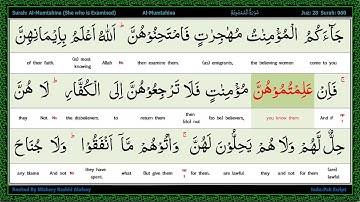 Surah: Al-Mumtahina (She who is Examined) Al-Mumtahina Juz: 28 Surah: 060
جَآءَكُمُ الْمُؤْمِنٰتُ مُهٰجِرٰتٍ فَامْتَحِنُوْهُنَّ ؕ اَللّٰهُ اَعْلَمُ بِاِيْمَانِهِنَّ
of their faith. (is) most knowing Allah then examine them. (as) emigrants, the believing women come to you
فَاِنْ عَلِمْتُمُوْهُنَّ مُؤْمِنٰتٍ فَلَا تَرْجِعُوْهُنَّ اِلَى الْكُفَّارِ ؕ لَا هُنَّ
they Not the disbelievers. to return them then (do) not (to be) believers, you know them And if
حِلٌّ لَّهُمْ وَلَا هُمْ يَحِلُّوْنَ لَهُنَّ ؕ وَاٰتُوْهُمْ مَّاۤ اَنْفَقُوْا ؕ وَلَا جُنَاحَ
blame And not any they have spent. what But give them for them. are lawful they and not for them (are) lawful
Recited By Mishary Rashid Alafasy Indo-Pak Script